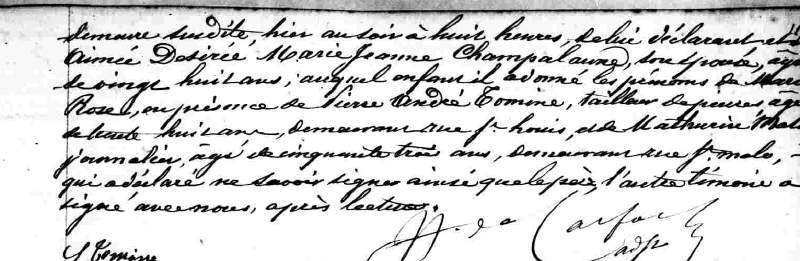 demeure susdite, hier au soir à huit heures, de lui déclarant et d
Aimée Desirée Marie Jeanne Champalaune, son épouse, âgé
de vingt huit ans, auquel enfant il a donné les prénoms de Marie
Rose, en présence de Pierre André Tomine, tailleur de pierres âgé
de trente huit ans, demeurant rue St Louis, et de Mathurin
journalier, âgé de cinquante trois ans, demeurant rue St malo,
qui a déclaré ne savoir signer ainsi que le père, l'autre témoin a
signé avec nous, après lecture.
adjt
Tomine